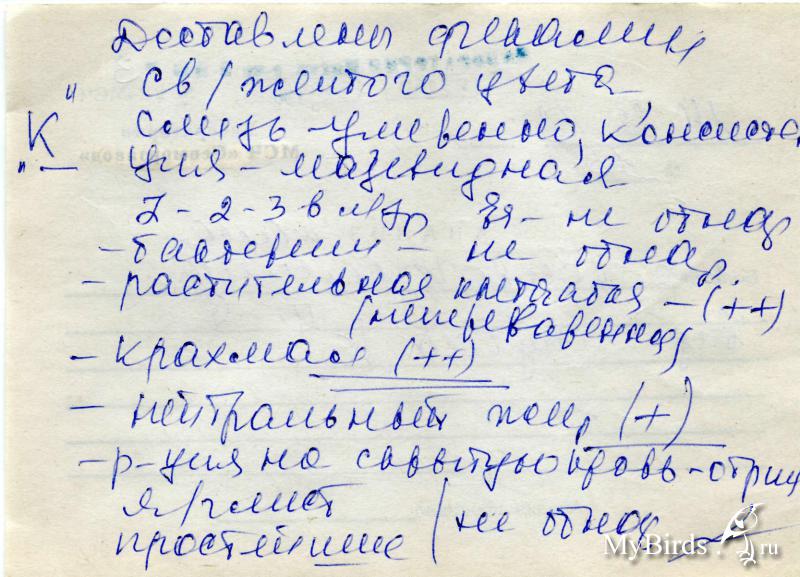 Доставлены фекалии
св/желтого цвета,
"К" слизь - умеренно, консистен
ция - мазевидная
L - 2-3 в п/зр Эр - не обнар
- бактерии - не обнар.
- растительная клетчатка - (++)
(непереваренная)
- крахмал (++)
- нейтральный жир (+)
- р-ция на скрытую кровь - отриц
я/глист
простейшие / не обнар
MyBirds.ru